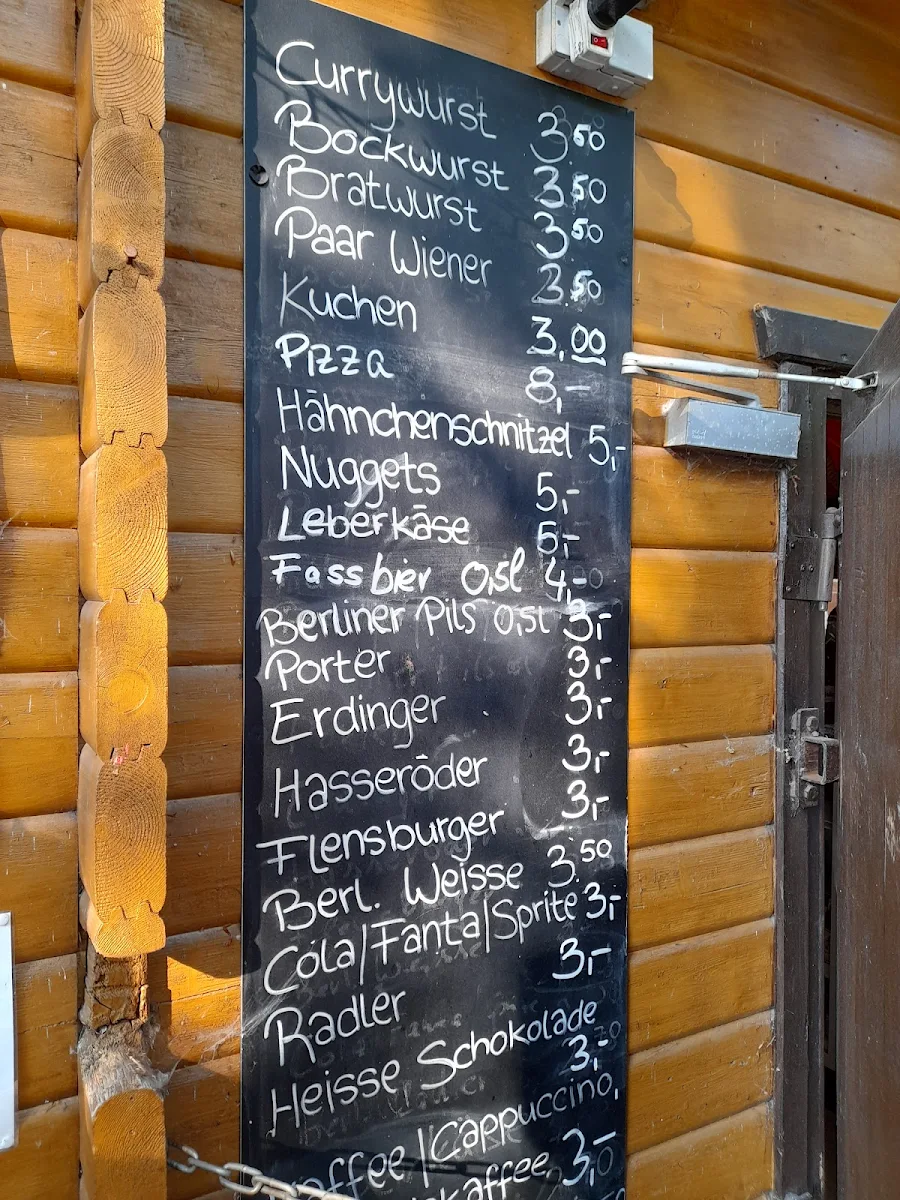 Currywurst 3 50
Bockwurst 3 50
Bratwurst 3 50
Paar Wiener 3.50
Kuchen 3,00
Pizza 8,-
Hähnchenschnitzel 5,-
Nuggets 5,-
Leberkäse 5,-
Fassbier 0,5l 4,-
Berliner Pils 0,5l 3,-
Porter 3,-
Erdinger 3,-
Hasseröder 3,-
Flensburger 3,-
Berl. Weisse 3.50
Cola/Fanta/Sprite 3,-
Radler 3,-
Heisse Schokolade 3,-
Kaffee/Cappuccino,
kaffee 3,-